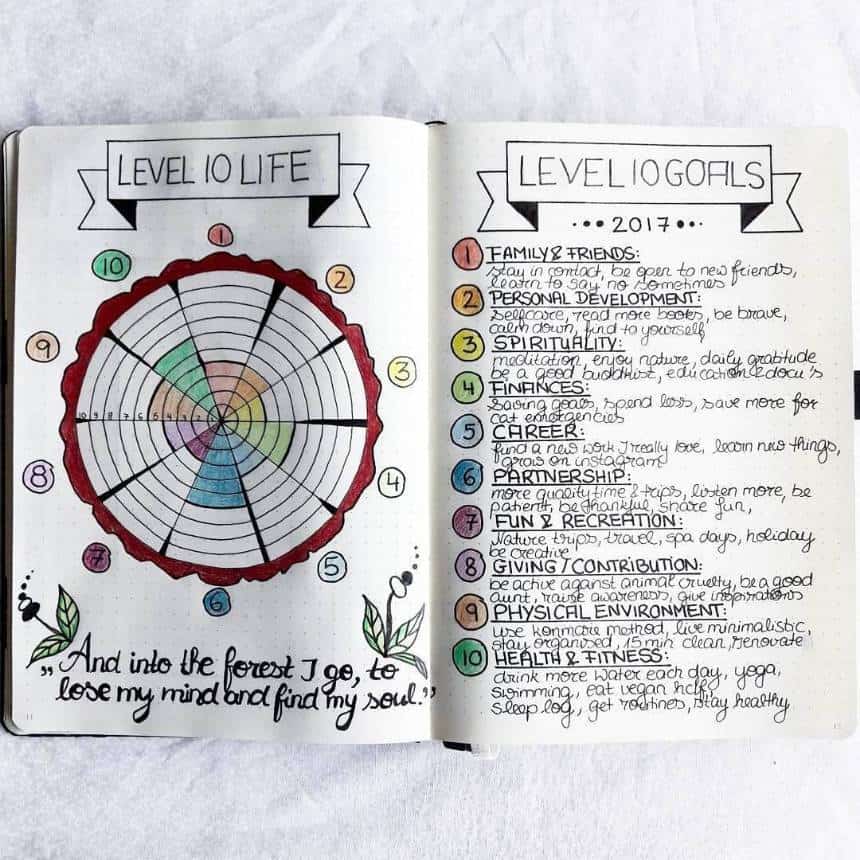 LEVEL 10 LIFE
1
10
2
9
3
10 9 8 7 6 5 4 3 2 1
8
4
7
5
6
„And into the forest I go, to
lose my mind and find my soul.”
LEVEL 10 GOALS
2017
1 FAMILY & FRIENDS:
stay in contact, be open to new friends,
learn to say no sometimes
2 PERSONAL DEVELOPMENT:
selfcare, read more books, be brave,
calm down, find to yourself
3 SPIRITUALITY:
meditation, enjoy nature, daily gratitude
be a good buddhist, education & docu's
4 FINANCES:
saving goals, spend less, save more for
cat emergencies
5 CAREER:
find a new work I really love, learn new things,
grow on instagram
6 PARTNERSHIP:
more quality time & trips, listen more, be
patient, be thankful, share fun,
7 FUN & RECREATION:
Nature trips, travel, spa days, holiday
be creative
8 GIVING / CONTRIBUTION:
be active against animal cruelty, be a good
aunt, raise awareness, give inspirations
9 PHYSICAL ENVIRONMENT:
use konmarie method, live minimalistic,
stay organised, 15 min clean, renovate
10 HEALTH & FITNESS:
drink more water each day, yoga,
swimming, eat vegan
sleep log, get routines, stay healthy